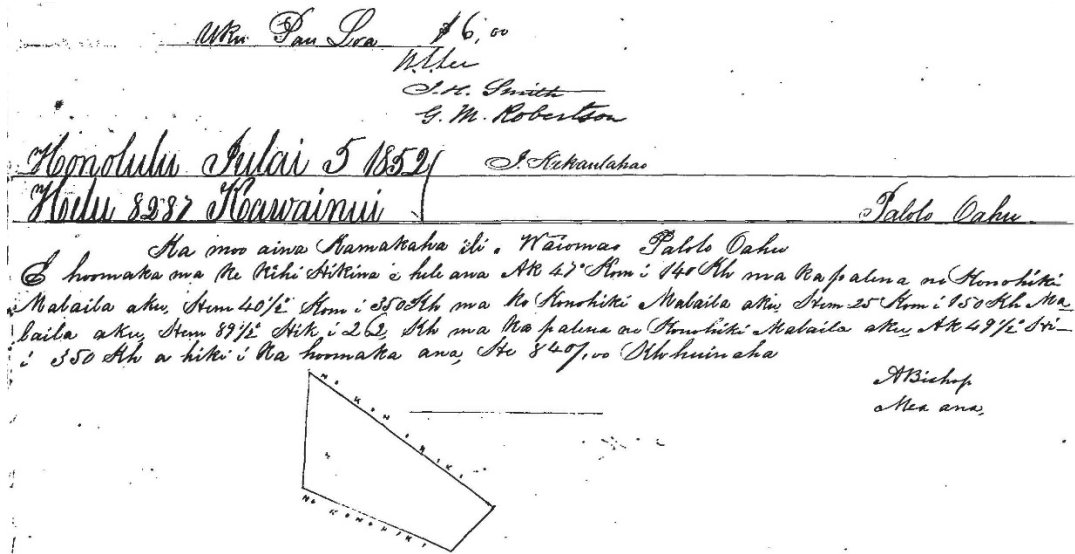 Uku Pau Loa $6,00
W. Lee
J. H. Smith
G. M. Robertson
Honolulu Iulai 5 1852 J. Kekaulahao
Helu 8287 Kawainui Palolo Oahu
Ka moo aina Kamakaha ili. Waiomao Palolo Oahu
E hoomaka ma ke Kihi Hikina e hele ana Ak 47° Kom i 140 Kh ma ka palena no Konohiki
Malaila aku, Hem 40½° Kom i 350 Kh ma ko Konohiki Malaila aku, Hem 25 Kom i 950 Kh Ma
laila aku, Hem 89½° Hik i 262, Kh ma ka palena no Konohiki Malaila aku, Ak 49½° Hi-
i 350 Kh a hiki i ka hoomaka ana, He 8407,00 Kh huinaha
A Bishop
Mea ana,
No KONOHIKI
No KONOHIKI